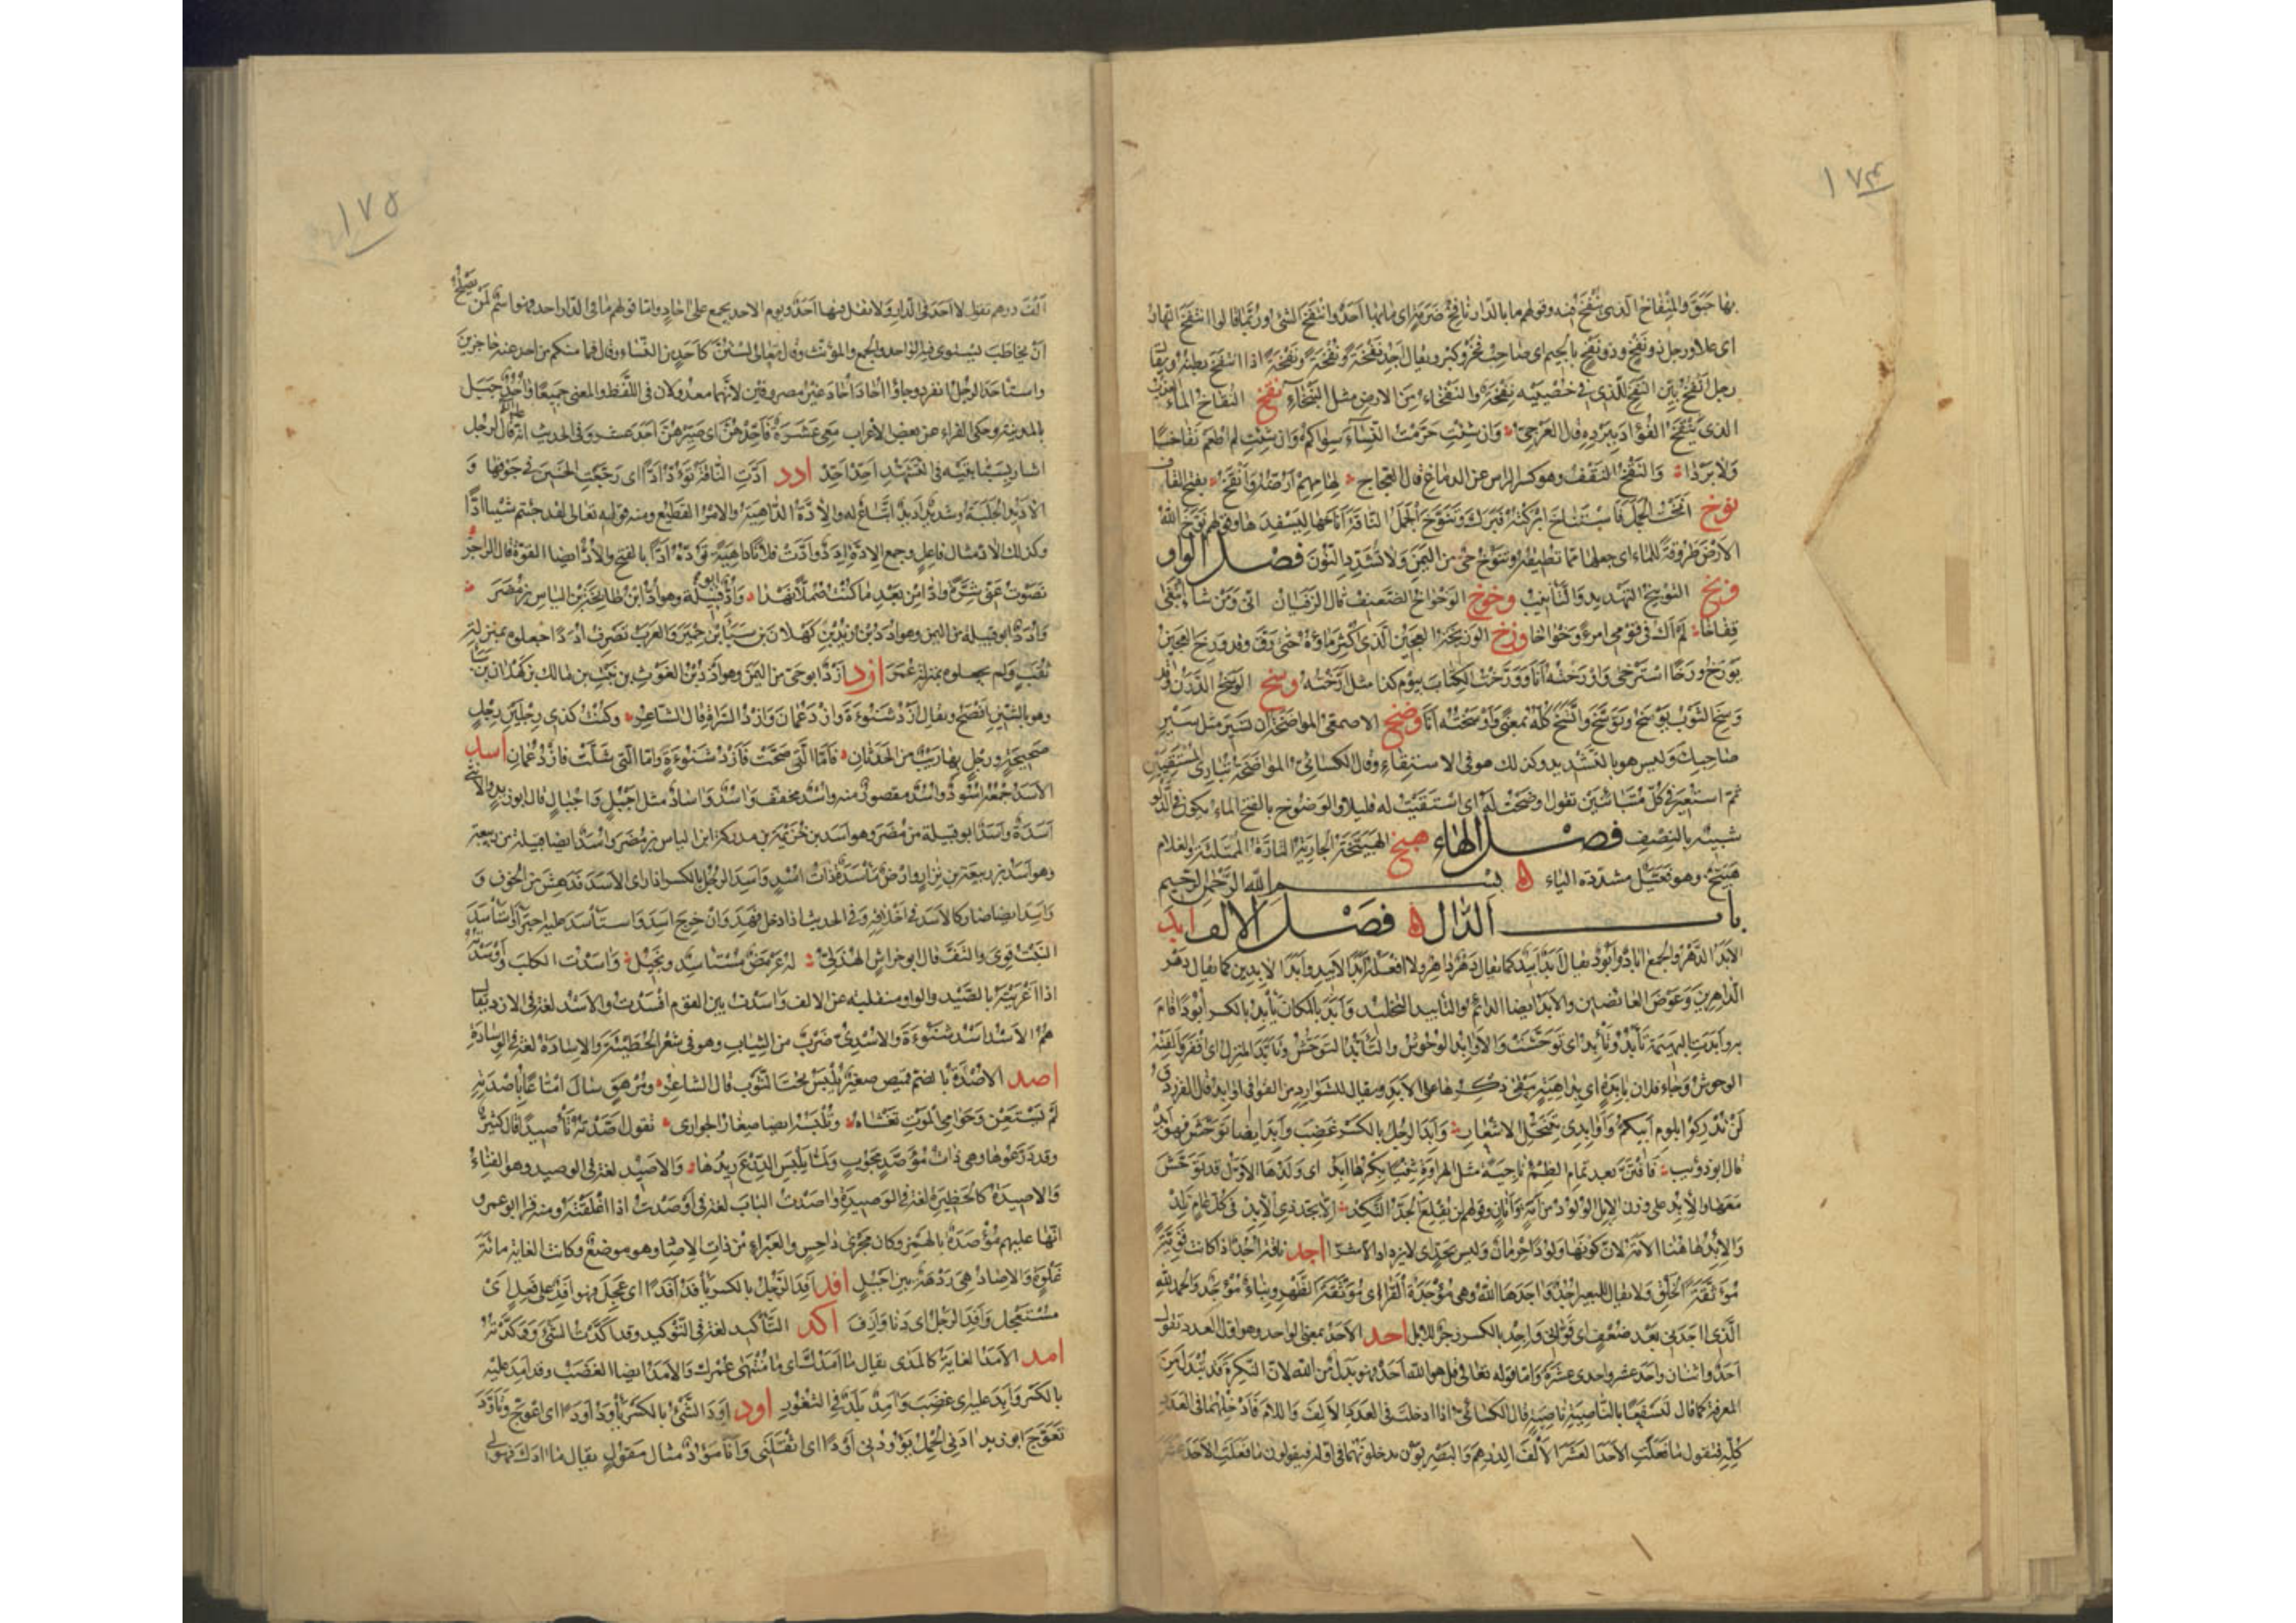 ١٧٤
بها حَبَقَ والمِنْفاخ الّذى يُنْفَخُ فيه وقولهم ما بالدّار نافِخُ ضَرَمَةٍ اى ما بها اَحَدٌ وانْتَفَخَ الشئ وربّما قالوا انتفخ النّهار
اى علا ورجل ذو نَفْخٍ وذو نَفْجٍ بالجيم اى صاحب فخر وكبر ويقال اَجِدُ نَفْخَةً ونُفْخَةً ونِفْخَةً اذا انتفخ بطنه ويقال
رجل اَنْفَخُ بيّن النفخ للّذى فى خُصْيَيْه نَفْخَةٌ والنَفْخاء من الارض مثل النَّبْخاءِ نقخ النُقاخ الماء العذب
الذى يَنْقَخُ الفُؤاد بِبَرْدِه قال العَرجىّ وان شِئْتِ حَرّمْتُ النِّساءَ سِواكم وان شِئْتِ لم اَطْعَم نُقاخًا
ولا بَرْدا والنَقْخُ النَقْفُ وهو كسر الراس عن الدماغ قال العجاج لِهامِهِم اَرُضُّهُ وَاَنْقَخُ بفتح القاف
نوخ انَختُ الجَمَلَ فاستناخ ابركتُه فَبَرَك وتَنَوَّخَ الجَمَلُ الناقةَ اَناخها لِيَسْفِدَها وقولهم نَوَّخَ اللهُ
الارضَ طَروقةً للماء اى جعلها ممّا تُطيقُه وتَنوخُ حىّ من اليَمَنِ ولا تُشَدِّدِ النُّونَ فصل الواو
وبخ التوبيخ التهديد والتأنيب وخوخ الوَخْواخُ الضعيف قال الزفيان انّى ومَن شاءَ ابْتَغَى
قِفاخا لم اَكُ فى قومى امرءً وَخْواخا ورخ الوَرِيخَةُ العجين الّذى اُكثِرَ ماؤُه حتى رَقَّ وقد وَرِخَ العجينُ
يَوْرَخُ وَرَخًا استرخى واَوْرَخْتُه اَنَا ووَرَّخْتُ الكتابَ بيوم كذا مثل اَرَّخْتُه وسخ الوَسَخُ الدَّرَنُ وقد
وَسِخَ الثوبُ يَوْسَخُ وتَوَسَّخَ واتَّسَخَ كلّه بمعنى واَوْسَخْتُه اَنَا وضخ الاصمعى المواضخةُ ان تسير مثل سَيْرِ
صاحبك وليس هو بالشديد وكذلك هو فى الاستقاء وقال الكسائى المواضخة تبارى المستقيين
ثم استعير فى كلّ متباريين تقول وضخت له اى استقيت له قليلا والوَضوخ بالفتح الماء يكون فى الدَّلْو
شبيه بالنصف فصل الهاء هبخ الهَبَيَّخَةُ الجارية التارّة الممتلئة والغلام
هَبَيَّخٌ وهو فَعَيَّلٌ مشدّدة الياء ه بسم الله الرّحمن الرّحيم
باب الدّال ه فصل الالف ابد
الاَبَدُ الدَّهْرُ والجمع آبادٌ واُبُودٌ يقال اَبَدٌ اَبِيدٌ كما يقال دَهْرٌ داهِرٌ ولا افعله اَبَدَ الاَبِيدِ واَبَدَ الآبِدِينَ كما يقال دَهْرَ
الدّاهِرِينَ وعَوْضَ العائضين والاَبَدُ ايضا الدائم والتأبيد التخليد واَبَدَ بالمكان يَأْبِدُ بالكسر اُبُودًا اقام
به واَبَدَتِ البهيمة تَأْبُدُ وتَأْبِدُ اى تَوَحَّشَتْ والاَوابِدُ الوُحُوشُ والتَأَبُّدُ التوحّش وتَأَبَّدَ المنزل اى اقفر واَلِفَتْهُ
الوحوش وجاء فلان بآبدة اى بداهية يبقى ذكرها على الاَبَدِ ويقال للشوارد من القوافى اَوابِدُ قال الفرزدق
لن تدركوا كرمى بلوم ابيكم واوابدى بتنحّل الاشعار واَبِدَ الرجل بالكسر غضب واَبِدَ ايضا تَوَحَّشَ فهو اَبِدٌ
قال ابو ذؤيب فافتنّ بعد تمام الظِمْءِ ناجيةً مثل الهراوة ثِنْيًا بِكْرُها اَبِدُ اى ولدها الاوّل قد تَوَحَّشَ
معها والاِبِدُ على وزن الاِبِلِ الوَلُودُ من اَمَةٍ واَتانٍ وقولهم لن يُقْلِعَ الجَدُّ النَكِدُ الّا بِجَدِّ ذى الاِبِد فى كلّ عام تَلِدُ
والاِبِدُ هاهنا الاَمَةُ لانّ كونها ولودًا حِرمانٌ وليس بجدٍّ اى لا يزداد الا شرّا اجد ناقة اُجُدٌ اذا كانت قَوِيّةً
مُوَثَّقَةَ الخَلْقِ ولا يقال للبعير اُجُدٌ واَجَدَها اللهُ وهى مُؤْجَدَةُ القَرا اى مُوَثَّقَةُ الظَّهْرِ وبناءٌ مُؤْجَدٌ والحمد لله
الّذى آجَدَنى بعد ضعف اى قوّانى واِجِدْ بالكسر زجر للابل احد الاَحَدُ بمعنى الواحد وهو اوّل العدد تقول
اَحَدٌ واثنان واَحَدَ عَشَرَ واِحدى عَشْرَةَ وامّا قوله تعالى قل هو الله احد فهو بدل من الله لانّ النكرة قد تُبْدَلُ مِنَ
المعرفة كما قال لَنَسْفَعًا بالنّاصِيَةِ ناصِيَةٍ قال الكسائى اذا ادخلت فى العدد الالف واللام فادخلهما فى العدد
كلّه فتقول ما فعلت الاَحَدَ العَشَرَ الاَلْفَ الدرهم والبصريّون يدخلونهما فى اوّله فيقولون ما فعلت الاَحَدَ عَشَرَ
١٧٥
اَلْفَ درهم تقول لا اَحَدَ فى الدّارِ ولا تقل فيها اَحَدٌ ويوم الاحد يجمع على آحادٍ وامّا قولهم ما فى الدّار احد فهو اسمٌ لِمَنْ يَصْلُحُ
اَنْ يُخاطَبَ يستوى فيه الواحد والجمع والمؤنّث وقال تعالى لَسْتُنَّ كاَحَدٍ مِن النِّساء وقال فما منكم من احد عنه حاجزين
واستأحَدَ الرجلُ انفرد وجاؤا اُحادَ اُحادَ غير مصروفين لانّهما معدولان فى اللّفظ والمعنى جميعًا واُحُدٌ جبل
بالمدينة وحكى الفراء عن بعض الاعراب معى عَشَرَةٌ فَاَحِّدْهُنَّ اى صَيِّرْهُنَّ اَحَدَ عَشَرَ وفى الحديث انّه قال لرجل
اشار بسبّابتيه فى التشهّد اَحِّدْ اَحِّدْ ادد اَدَّتِ الناقةُ تَؤُدُّ اَدًّا اى رجّعت الحنين فى جوفها و
الاَدِيدُ الجَلَبَةُ وشديدٌ اَدِيدٌ اتباع له والاِدُّ والاِدَّةُ الداهية والامر الفظيع ومنه قوله تعالى لقد جئتم شيئا اِدًّا
وكذلك الآدُّ مثال فاعل وجمع الاِدَّةِ اِدَدٌ واَدَّتْ فلانًا داهيةٌ تَؤُدُّهُ اَدًّا بالفتح والاَدُّ ايضا القوّة قال الراجز
نَضَوْنَ عنّى شِرَّةً واَدّا مِن بَعْدِ ما كنتُ صُمُلًّا نَهْدا واُدٌّ ابو قبيلة وهو اُدُّ بْنُ طابخةَ بْنِ الياس بن مُضَرَ
واُدَدٌ ابو قبيلة من اليمن وهو اُدَدُ بْنُ زيد بْنِ كهلان بْنِ سَبَأ بن حِمْيَرَ والعرب تصرف اُدَدًا جعلوه بمنزلة
ثُقَبٍ ولم يجعلوه بمنزلة عُمَرَ ازد اَزْدٌ ابو حىّ من اليمن وهو اَزْدُ بْنُ الغَوْثِ بن نَبْتِ بن مالك بن كهلان بن سبأ
وهو بالسّين افصح ويقال اَزْدُ شَنُوءَةَ واَزْدُ عُمانَ واَزْدُ السَّراةِ قال الشاعر وكنتُ كذى رِجْلَيْنِ رِجْلٍ
صحيحةٍ ورجلٍ بها رَيْبٌ من الحَدَثانِ فَاَمّا الّتى صَحَّتْ فَاَزْدُ شَنُوءَةٍ وامّا الّتى شَلَّتْ فازدُ عُمانِ اسد
الاَسَدُ جمعه اُسُودٌ واُسُدٌ مقصور منه واُسْدٌ مخفّف واَآسُدٌ وآسادٌ مثل اَجْبُلٍ واَجْبالٍ قال ابو زيد والانثى
اَسَدَةٌ واَسَدٌ ابو قبيلة من مُضَرَ وهو اسد بن خُزَيْمَةَ بن مدركة ابن الياس بن مُضَرَ واسد ايضا قبيلة من ربيعة
وهو اَسَدُ بن ربيعة بن نزار وارض مَأْسَدَةٌ ذات اُسْدٍ واَسِدَ الرجل بالكسر اذا راى الاسد فدهش من الخوف و
واَسِدَ ايضا صار كالاسد فى اخلاقه وفى الحديث اذا دخل فَهِدَ وان خرج اَسِدَ واستأسد عليه اجترأ واستأسد
النَبْتُ قوى والتفّ قال ابو خراش الهذلىّ له عَرْمَضٌ مستأسِدٌ ونَجِيلُ وآسَدْتُ الكلب واَوْسَدْتُهُ
اذا اغريته بالصَّيْد والواو منقلبة عن الالف وآسَدْتُ بين القوم افسدت والاَسْدُ لغة فى الازد يقال
هُمُ الاَسْدُ اَسْدُ شَنُوءَةَ والاُسْدِىُّ ضرب من الثياب وهو فى شعر الحُطَيْئَةِ والاِسادةُ لغة فى الوسادة
اصد الاُصْدَةُ بالضم قميص صغير يُلْبَسُ تحت الثوب قال الشاعر ومُرْهَقٍ سال اِمْتاعًا بِاُصْدَتِهِ
لم يَسْتَعِنْ وحَوامِى الموتِ تَغْشاهُ وتَلْبَسُهُ ايضا صغار الجوارى تقول اَصَّدْتُهُ تَأْصِيدًا قال كثيّر
وقد درّعوها وهى ذاتُ مُؤَصَّدٍ مَجُوبٍ ولمّا يَلْبَسِ الدِّرْعَ رِيدُها والاَصِيدُ لغة فى الوصيد وهو الفِناءُ
والاَصِيدَةُ كالحظيرة لغة فى الوصيدة وآصَدْتُ البابَ لغة فى اَوْصَدْتُ اذا اغلقته ومنه قرأ ابو عمرو
انّها عليهم مُؤْصَدَةٌ بالهمز وكان مجرى داحس والغبراء من ذات الاصاد وهو موضع وكانت الغاية مائة
غَلْوَةٍ والاِصادُ هى رَدْهَةٌ بين اَجْبُلٍ افد اَفِدَ الرجل بالكسر يَأْفَدُ اَفَدًا اى عَجِلَ فهو اَفِدٌ على فَعِلٍ اى
مستعجل واَفِدَ الرجل اى دنا واَزِفَ اكد التأكيد لغة فى التوكيد وقد اَكَّدْتُ الشئ ووَكَّدْتُه
امد الاَمَدُ الغاية كالمَدَى يقال ما اَمَدُكَ اى ما مُنْتَهَى عُمْرِكَ والاَمَدُ ايضا الغَضَبُ وقد اَمِدَ عليه
بالكسر واَبِدَ عليه اى غَضِبَ وآمِدُ بَلَدٌ فى الثغور اود اَوِدَ الشئُ بالكسر يَأْوَدُ اَوَدًا اى اعوجّ وتَأَوَّدَ
تَعَوَّجَ ابو زيد آدَنى الحِمْلُ يَؤُودُنى اَوْدًا اى اثقلنى واَنَا مَؤُودٌ مثال مَقُولٍ يقال ما آدَكَ فهو لى